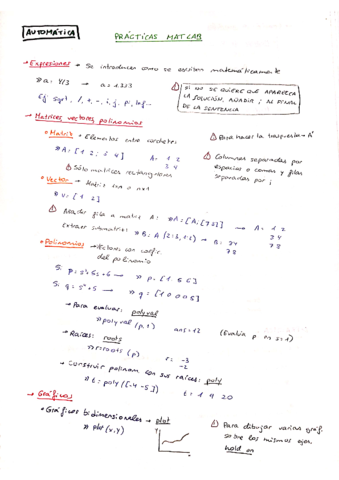 AUTOMÁTICA
PRÁCTICAS MATLAB
→ Expresiones → Se introducen como se escriben matemáticamente
» a = 4/3 → a = 1.333
Ej: sqrt, /, +, -, i, j, pi, Inf...
⚠ SI NO SE QUIERE QUE APAREZCA
LA SOLUCIÓN, AÑADIR ; AL FINAL
DE LA SENTENCIA
→ Matrices vectores polinomios
• Matriz → Elementos entre corchetes
» A = [1 2; 3 4] A = 1 2
3 4
⚠ Sólo matrices rectangulares
⚠ Para hacer la traspuesta → A'
⚠ Columnas separadas por
espacios o comas y filas
separadas por ;
• Vector → Matriz 1xn o nx1
» v = [1 2]
⚠ Añadir fila a matriz A: » A = [A; [7 8]] → A = 1 2
3 4
7 8
Extraer submatriz: » B = A (2:3, 1:2) → B = 3 4
7 8
• Polinomios → Vectores con coefic.
del polinomio
Si p = s²+5s+6 → » p = [1 5 6]
Si q = s⁴+5 → » q = [1 0 0 0 5]
→ Para evaluar: polyval
» polyval (p, 1) ans = 12 (Evalúa p en s=1)
→ Raíces: roots
» r = roots (p) r = -3
-2
→ Construir polinom con sus raíces: poly
» t = poly ([-4 -5]) t = 1 9 20
→ Gráficos
• Gráficos bidimensionales → plot
» plot (x, y)
y
x
⚠ Para dibujar varias gráf.
sobre los mismos ejes
hold on